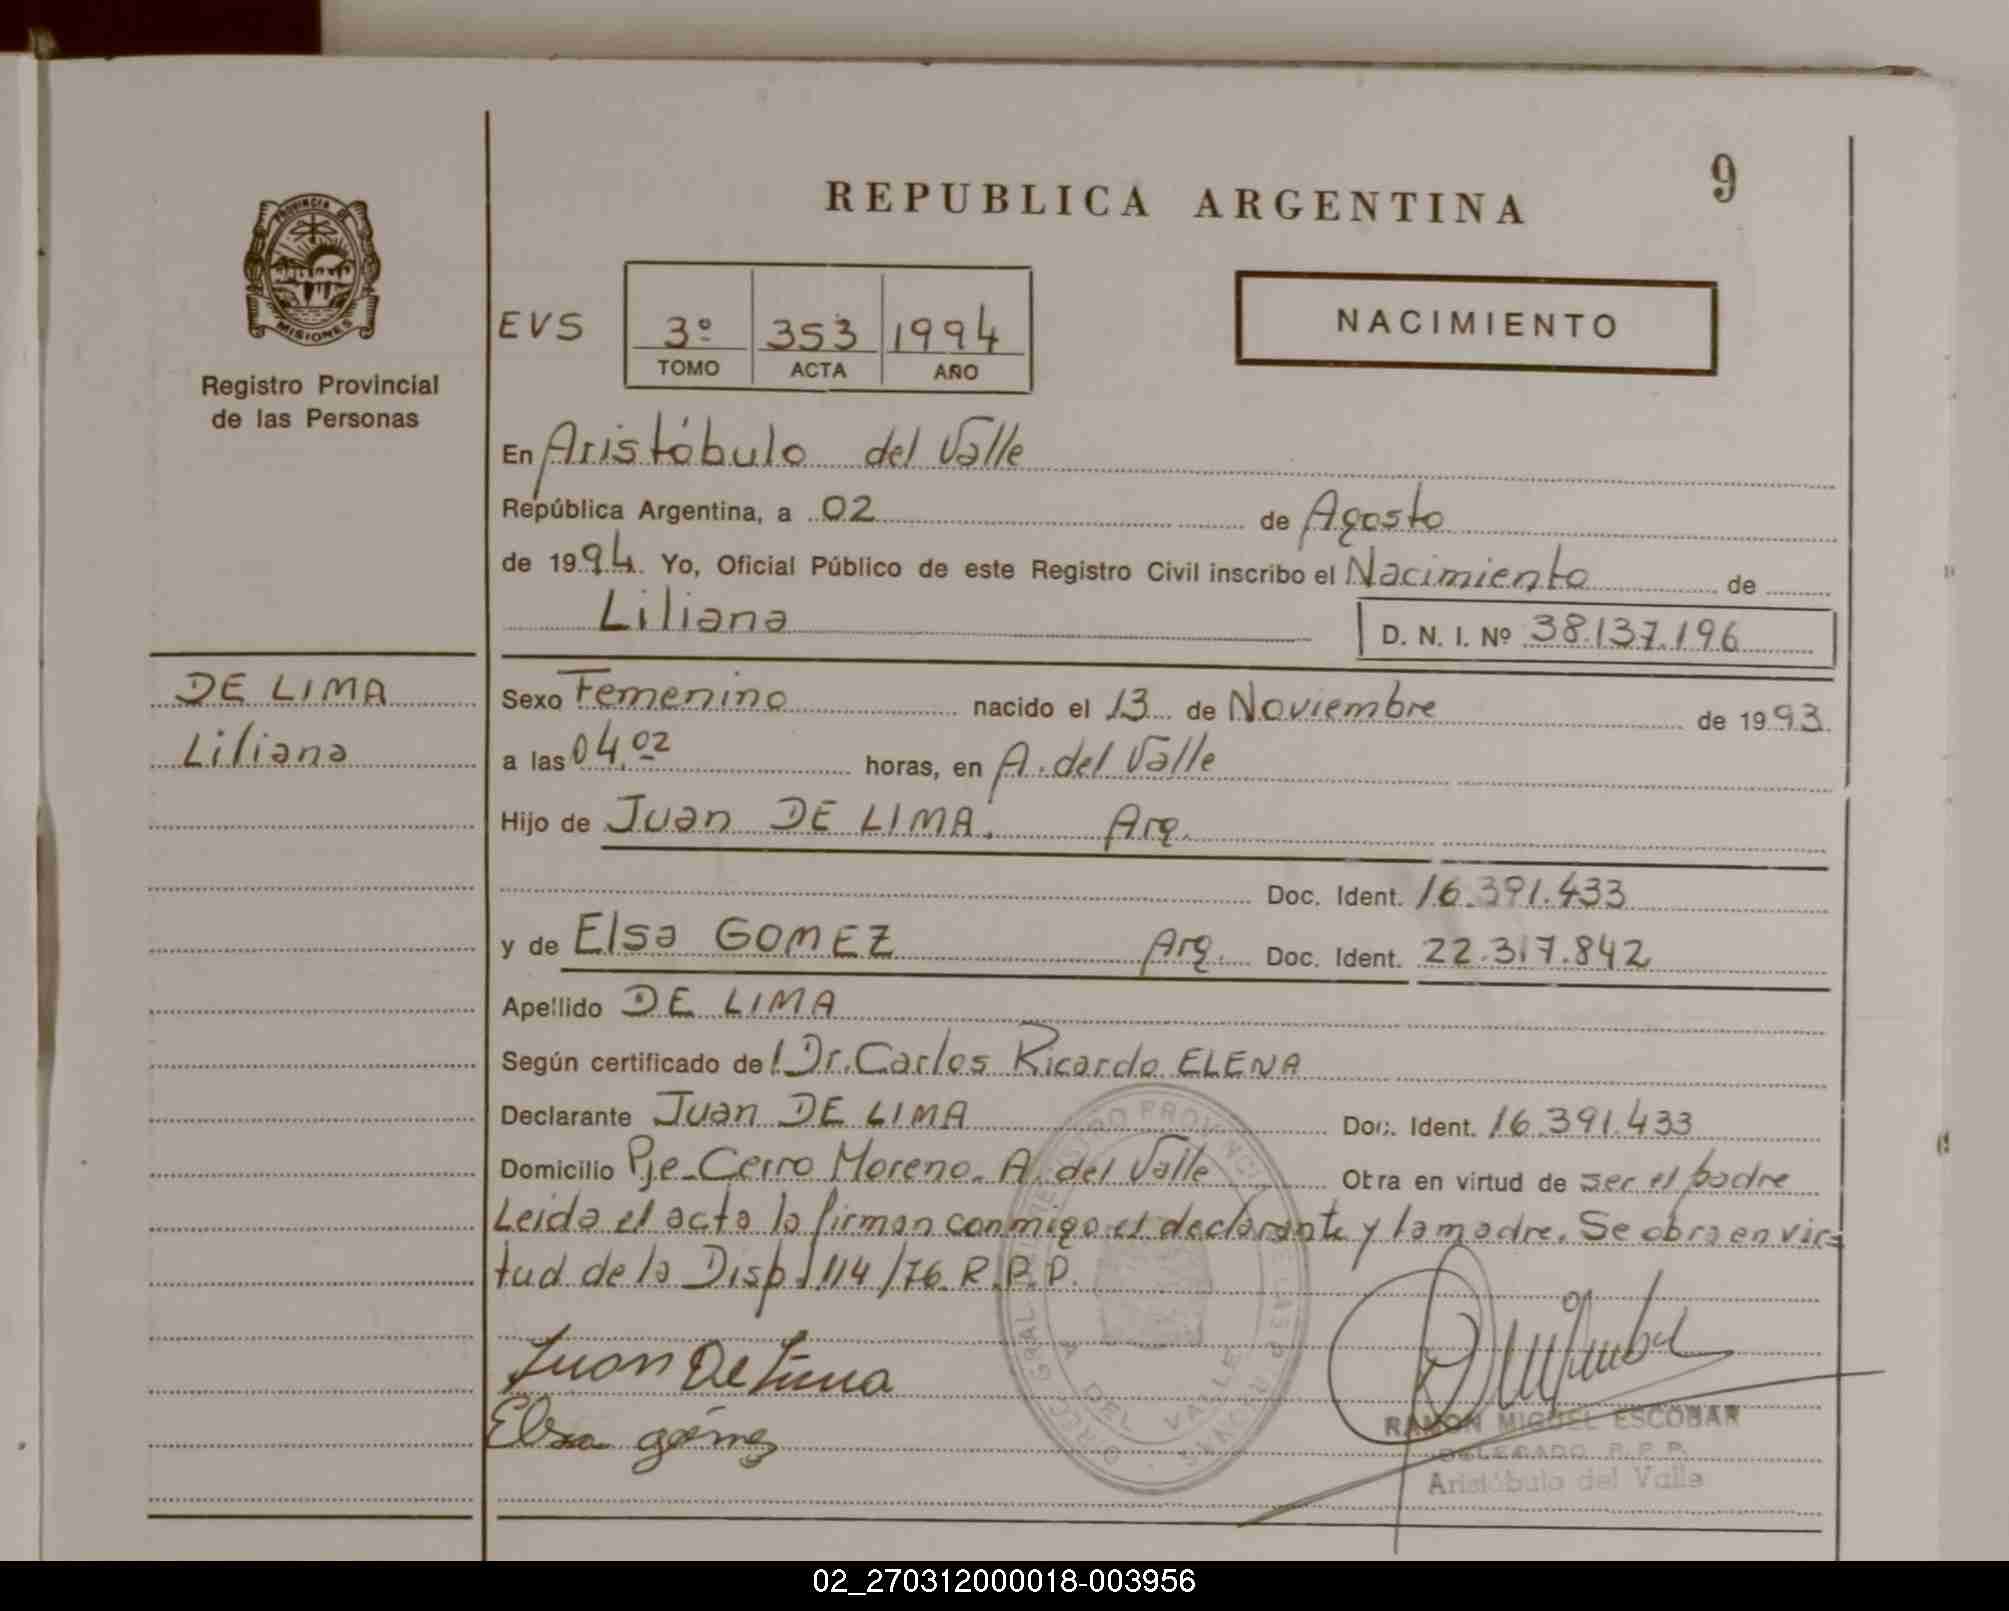 9
REPUBLICA ARGENTINA
PROVINCIA DE
MISIONES
Registro Provincial
de las Personas
EVS
3º 353 1994
TOMO ACTA AÑO
NACIMIENTO
En Aristóbulo del Valle
República Argentina, a 02 de Agosto
de 1994. Yo, Oficial Público de este Registro Civil inscribo el Nacimiento de
Liliana D. N. I. Nº 38.137.196
DE LIMA
Liliana
Sexo Femenino nacido el 13 de Noviembre de 1993
a las 04,02 horas, en A. del Valle
Hijo de Juan DE LIMA. Arg.
Doc. Ident. 16.391.433
y de Elsa GOMEZ Arg. Doc. Ident. 22.317.842
Apellido DE LIMA
Según certificado del Dr. Carlos Ricardo ELENA
Declarante Juan DE LIMA Doc. Ident. 16.391.433
Domicilio Pje. Cerro Moreno. A. del Valle Otra en virtud de ser el padre
Leida el acta la firman conmigo el declarante y la madre. Se obra en vir=
tud de la Disp. 114/76 R.P.P.
Juan De Lima
Elsa gómez
A DEL VALLE
RAMON MIGUEL ESCOBAR
DELEGADO R.P.P.
Aristóbulo del Valle
02_270312000018-003956